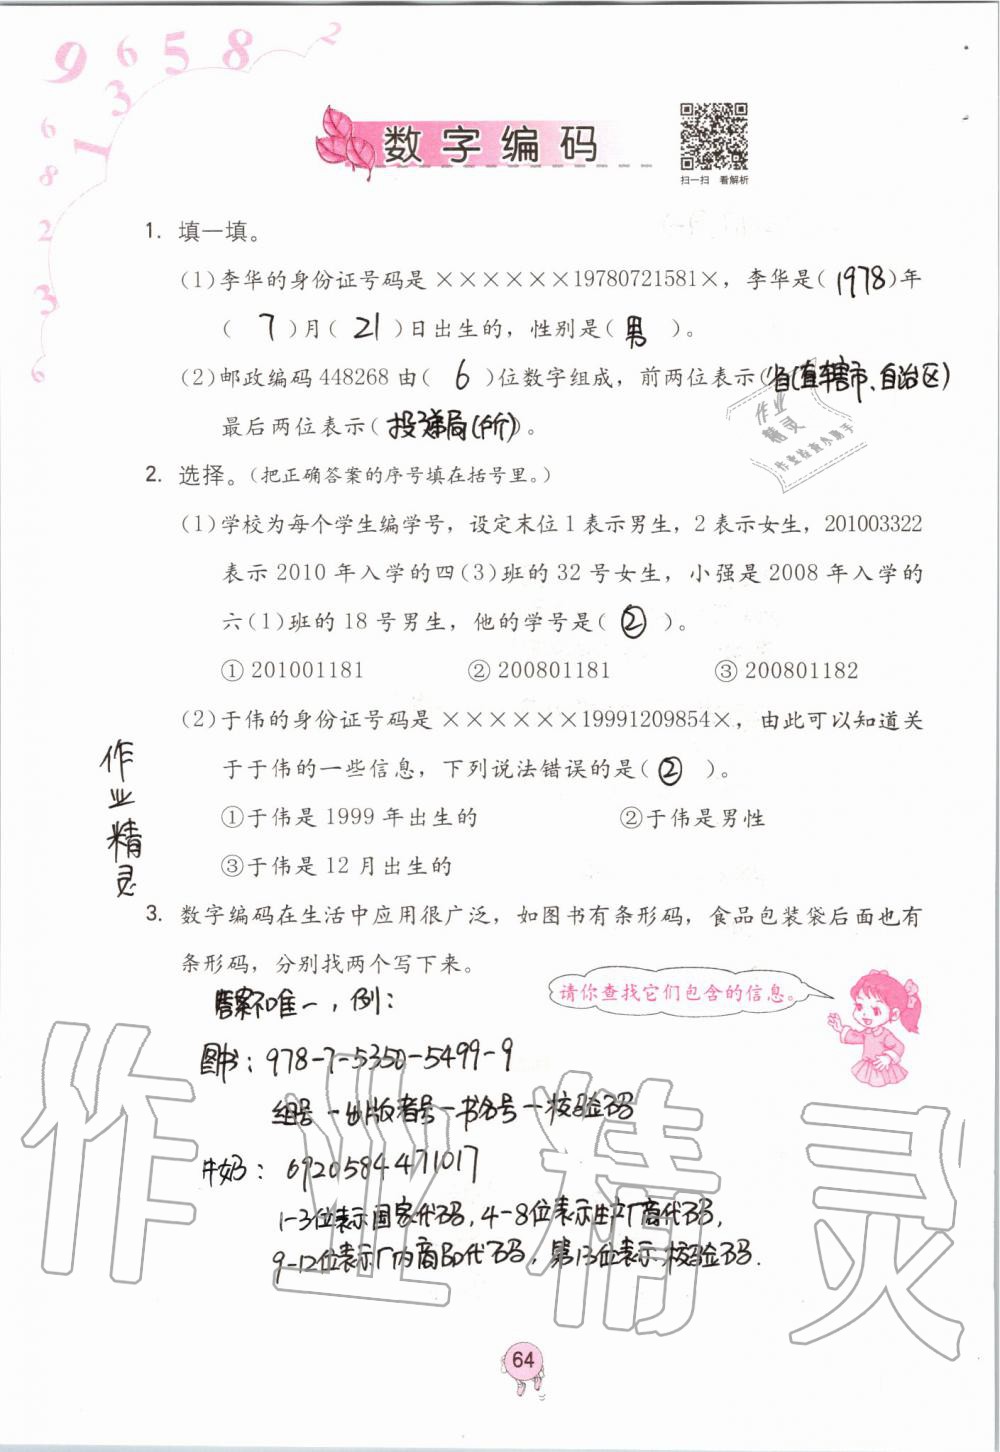 9 6 5 8 2
1 3
6
8
2
3
6
数字编码
扫一扫 看解析
1. 填一填。
(1)李华的身份证号码是××××××19780721581×，李华是(1978)年
(7)月(21)日出生的，性别是(男)。
(2)邮政编码448268由(6)位数字组成，前两位表示(省(直辖市、自治区)
最后两位表示(投递局(所))。
作业
精灵
作业检查小助手
2. 选择。(把正确答案的序号填在括号里。)
(1)学校为每个学生编学号，设定末位1表示男生，2表示女生，201003322
表示2010年入学的四(3)班的32号女生，小强是2008年入学的
六(1)班的18号男生，他的学号是(②)。
① 201001181 ② 200801181 ③ 200801182
(2)于伟的身份证号码是××××××19991209854×，由此可以知道关
于于伟的一些信息，下列说法错误的是(②)。
①于伟是1999年出生的 ②于伟是男性
③于伟是12月出生的
作业精灵
3. 数字编码在生活中应用很广泛，如图书有条形码，食品包装袋后面也有
条形码，分别找两个写下来。
请你查找它们包含的信息。
答案不唯一，例：
图书：978-7-5350-5499-9
组号-出版者号-书名号-校验码
牛奶：6920584471017
1-3位表示国家代码，4-8位表示生产厂商代码，
9-12位表示厂内商品代码，第13位表示校验码.
作业精灵
64